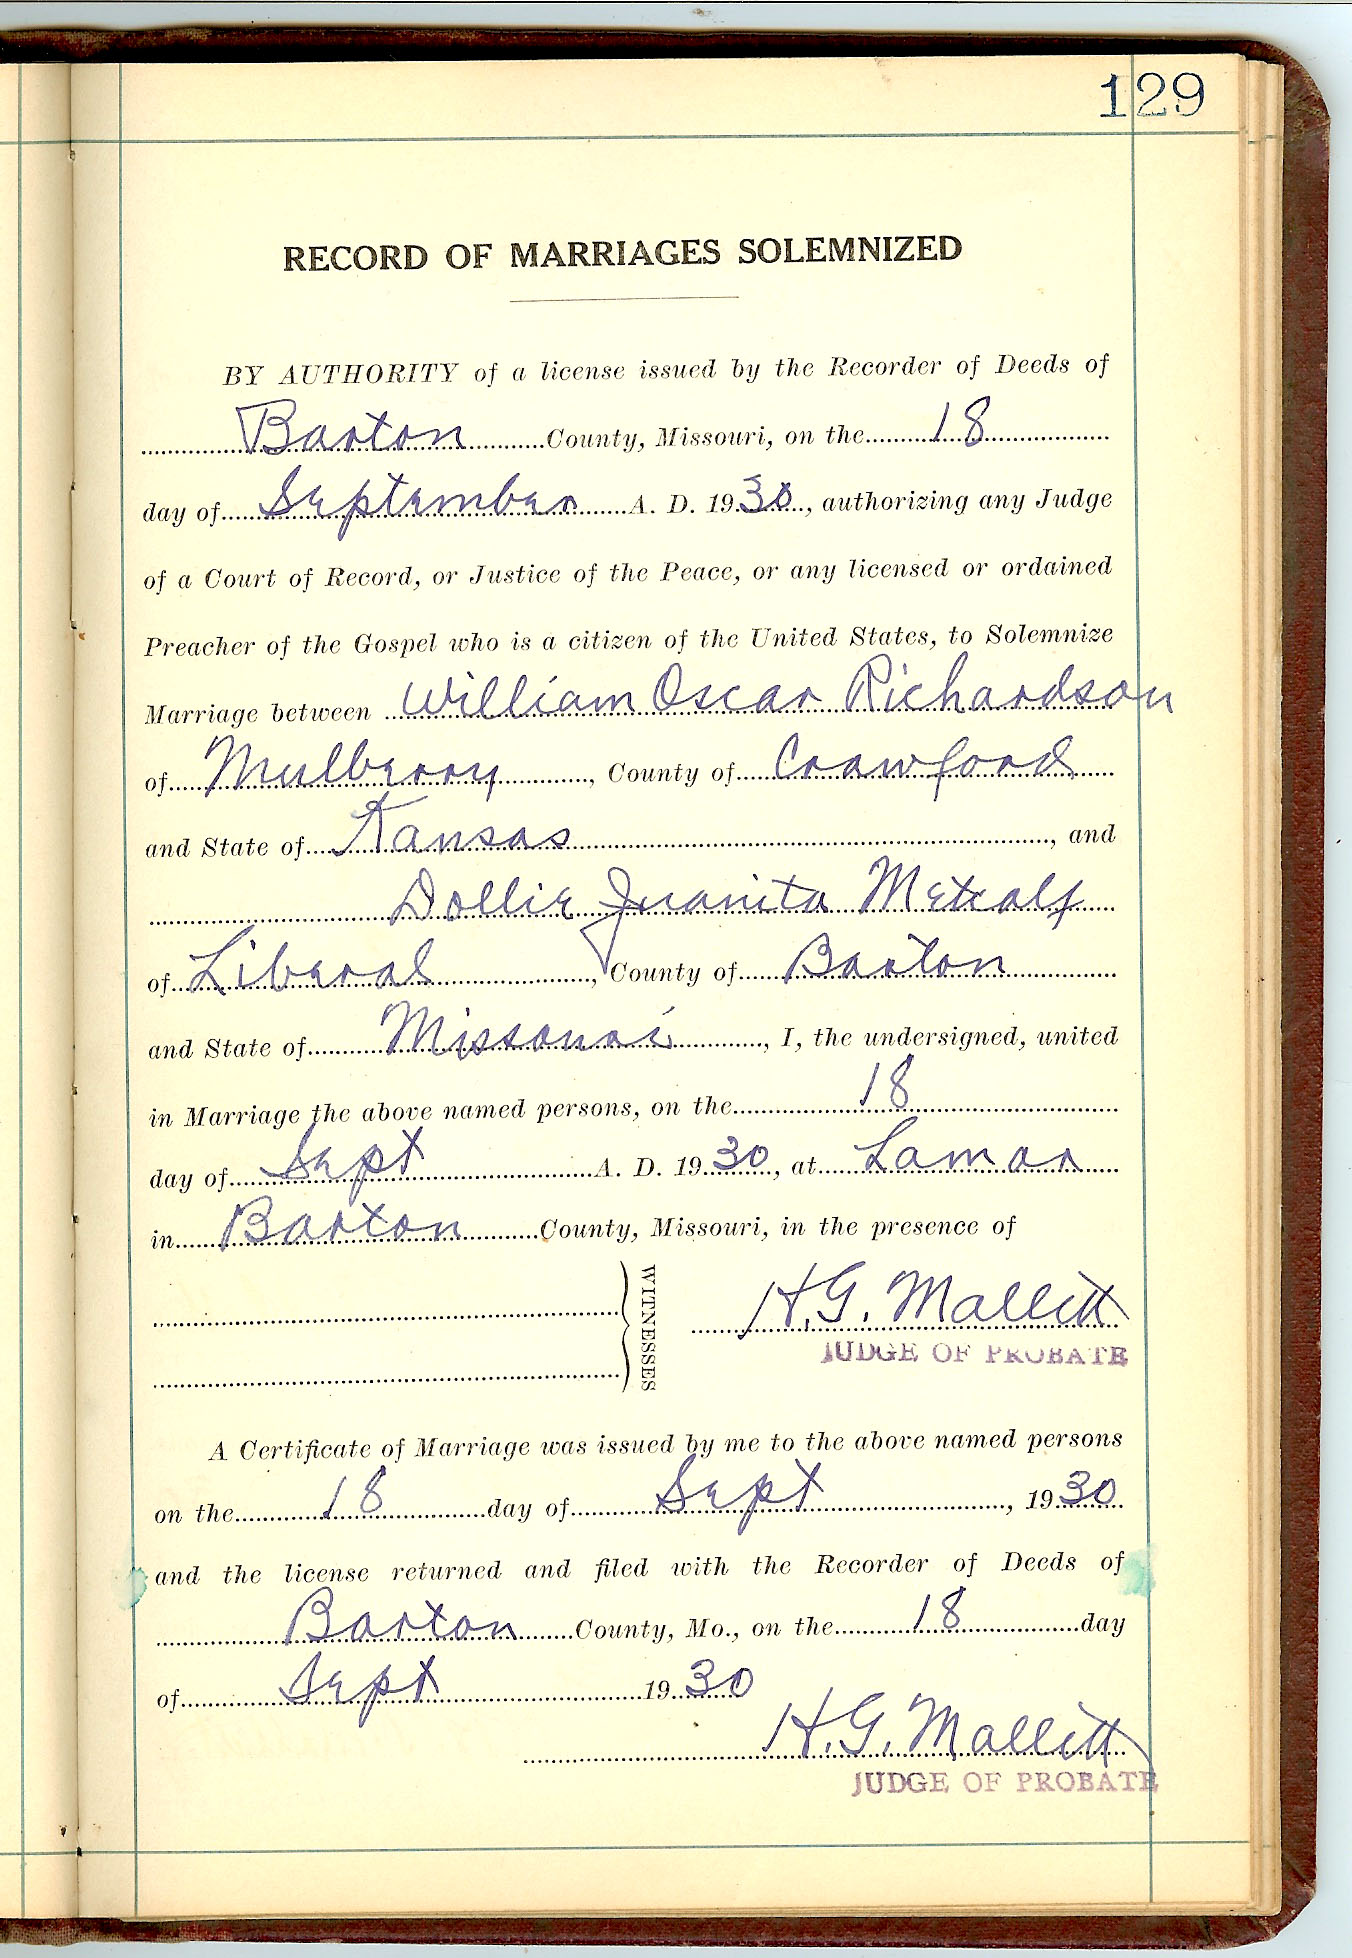 129
RECORD OF MARRIAGES SOLEMNIZED
BY AUTHORITY of a license issued by the Recorder of Deeds of
Barton County, Missouri, on the 18
day of September A. D. 1930, authorizing any Judge
of a Court of Record, or Justice of the Peace, or any licensed or ordained
Preacher of the Gospel who is a citizen of the United States, to Solemnize
Marriage between William Oscar Richardson
of Mulberry, County of Crawford
and State of Kansas, and
Dollie Juanita Metcalf
of Liberal, County of Barton
and State of Missouri, I, the undersigned, united
in Marriage the above named persons, on the 18
day of Sept A. D. 1930, at Lamar
in Barton County, Missouri, in the presence of
WITNESSES
H. G. Mallett
JUDGE OF PROBATE
A Certificate of Marriage was issued by me to the above named persons
on the 18 day of Sept, 1930
and the license returned and filed with the Recorder of Deeds of
Barton County, Mo., on the 18 day
of Sept 1930
H. G. Mallett
JUDGE OF PROBATE